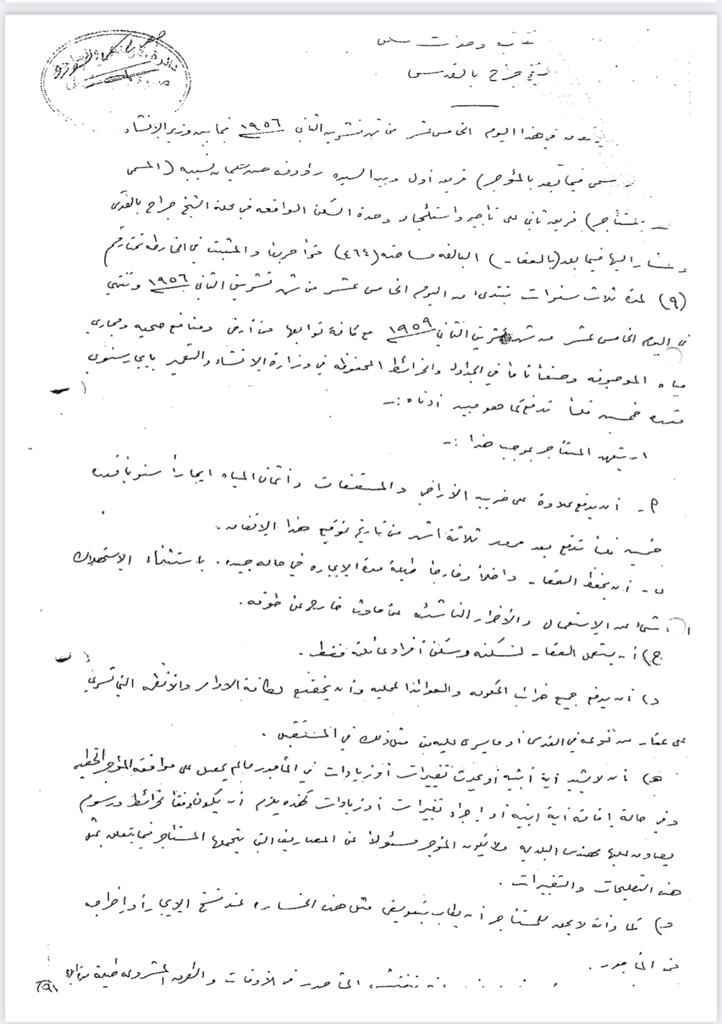 وحدات سكن
جراح بالقدس
في هذا اليوم الخامس عشر من شهر تشرين الثاني ١٩٥٦ فيما بين وزير الإنشاء
فيما بعد بالمؤجر) فريق أول وبين السيده (المسمى
فريق ثاني على تأجير واستئجار وحدة السكن الواقعه في محلة الشيخ جراح بالقدس
اليها فيما بعد (بالعقار) البالغه مساحته (٤٦٤) والمثبت في الخارطه تحت رقم
(٩) لمدة ثلاث سنوات تبتدئ من اليوم الخامس عشر من شهر تشرين الثاني ١٩٥٦ وتنتهي
في اليوم الخامس عشر من شهر تشرين الثاني ١٩٥٩ مع كافة توابعها من أرض ومنافع صحيه ومجاري
مياه الموصوفه وصفاً تاماً في الجداول والخرائط المحفوظه في وزارة الانشاء والتعمير بايجار سنوي
قدره خمسين فلساً تدفع كما هو مبين أدناه :-
يتعهد المستأجر بموجب هذا :-
أ- أن يدفع علاوة على ضريبة الأراضي والمسقفات وأثمان المياه ايجاراً سنوياً قدره
خمسين فلساً تدفع بعد مرور ثلاثة اشهر من تاريخ توقيع هذا الاتفاق.
ب- أن يحفظ العقار داخلاً وخارجاً طيلة مدة الإيجاره في حاله جيده. باستثناء الاستهلاك
الإستعمال والأضرار الناشئه عن حادث خارج عن طوقه.
ج) أن يستعمل العقار لسكنه وسكن أفراد عائلته فقط.
د) أن يدفع جميع ضرائب الحكومه والعوائد المحليه وأن يخضع لكافة الاوامر والأنظمه التي تسري
على عقار من نوعه في القدس أو ما يسري عليه من مثل ذلك في المستقبل.
هـ) أن لا يشيد أية أبنيه أو يحدث تغييرات أو زيادات في المأجور مالم يحصل على موافقة المؤجر الخطيه
وفي حالة إقامة أية ابنيه أو إجراء تغييرات أو زيادات كهذه يلزم أن يكون وفقاً لخرائط ورسوم
يصادق عليها مهندس البلديه ولا يكون المؤجر مسئولاً عن المصاريف التي يتحملها المستأجر فيما يتعلق بمثل
هذه التعليمات والتغييرات.
و) كما وانه لا يحق للمستأجر أن يطالب بتعويض مثل هذه الخساره عند فسخ الإيجار أو إخراجه
من المأجور.
المأجور في الأوقات والطرق المشروعه طيلة مدة